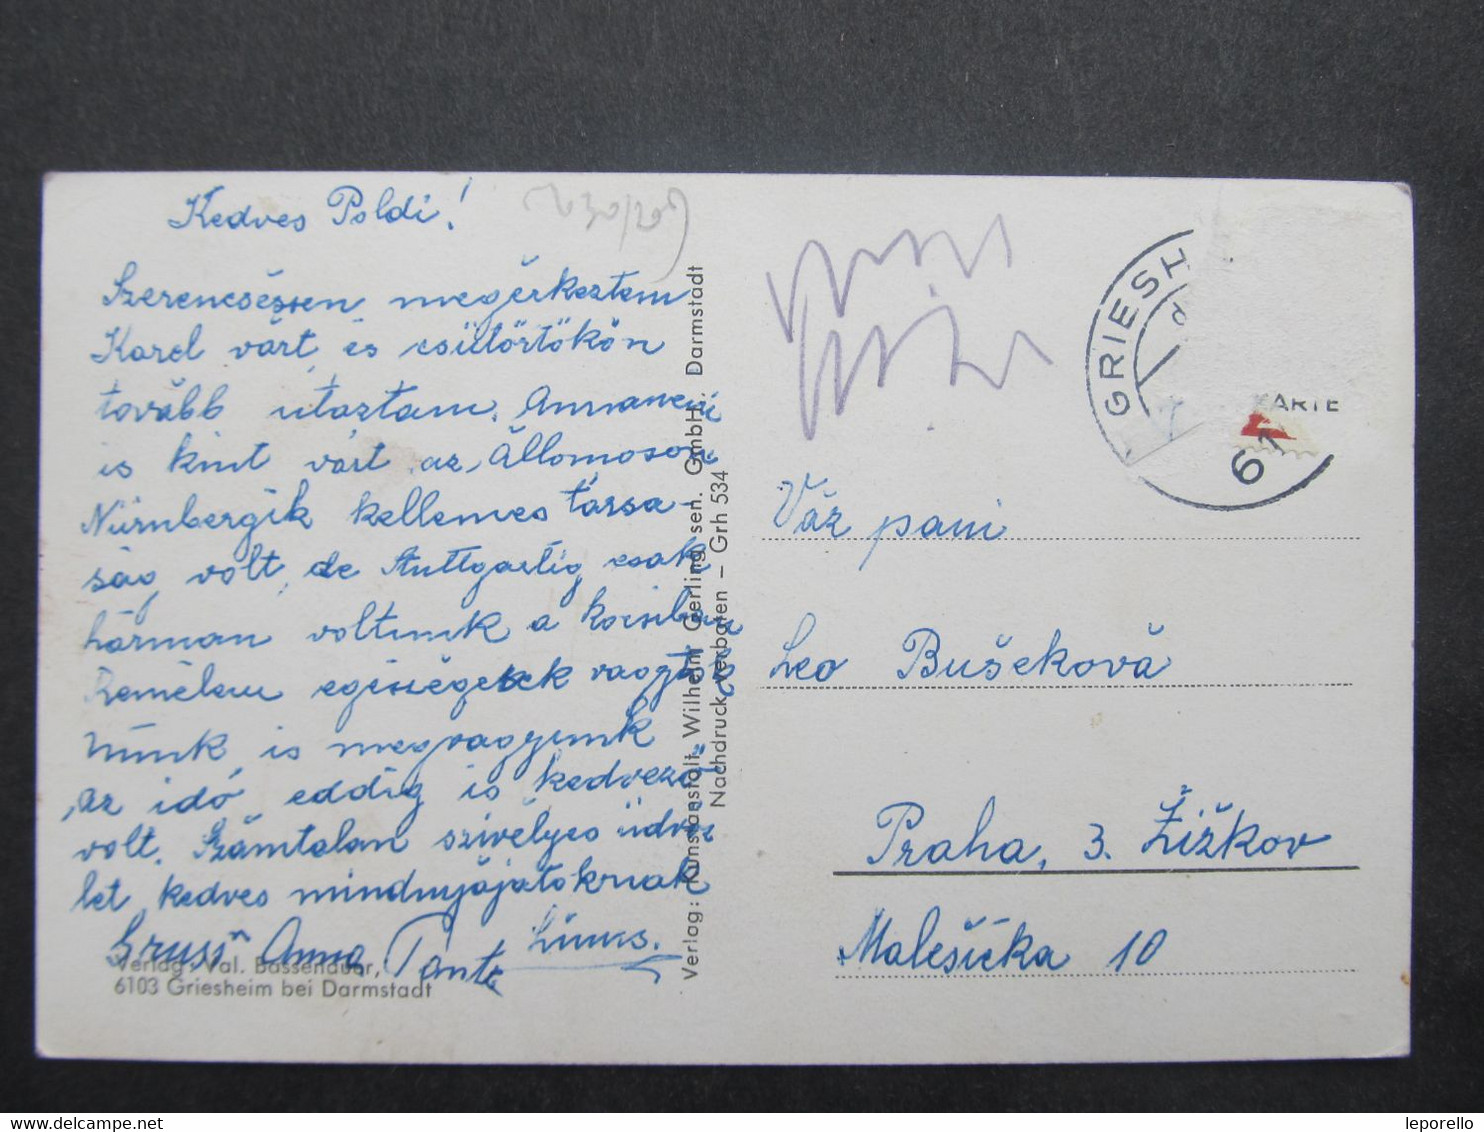 Kedves Poldi!
Szerencsésen megérkeztem
Karel várt, és csütörtökön
tovább utaztam. Annaneni
is kint várt az Állomoson
Nürnbergik kellemes társa-
ság volt, de Stuttgartig csak
hárman voltunk a kocsiban
Remélem egiségesek vagytok
mink is megvagyunk
az idó eddig is kedvező
volt. Számtalan szívelyes üdvöz
let kedves mindnyájatoknak
Gruss Anna Tante
Verlag: Val. Bassenauer,
6103 Griesheim bei Darmstadt
Verlag: Kunstanstalt Wilhelm Gerling sen. GmbH., Darmstadt
Nachdruck verboten – Grh 534
GRIESH
61
KARTE
Váž pani
Leo Bušeková
Praha, 3. Žižkov
Malešická 10
leporello